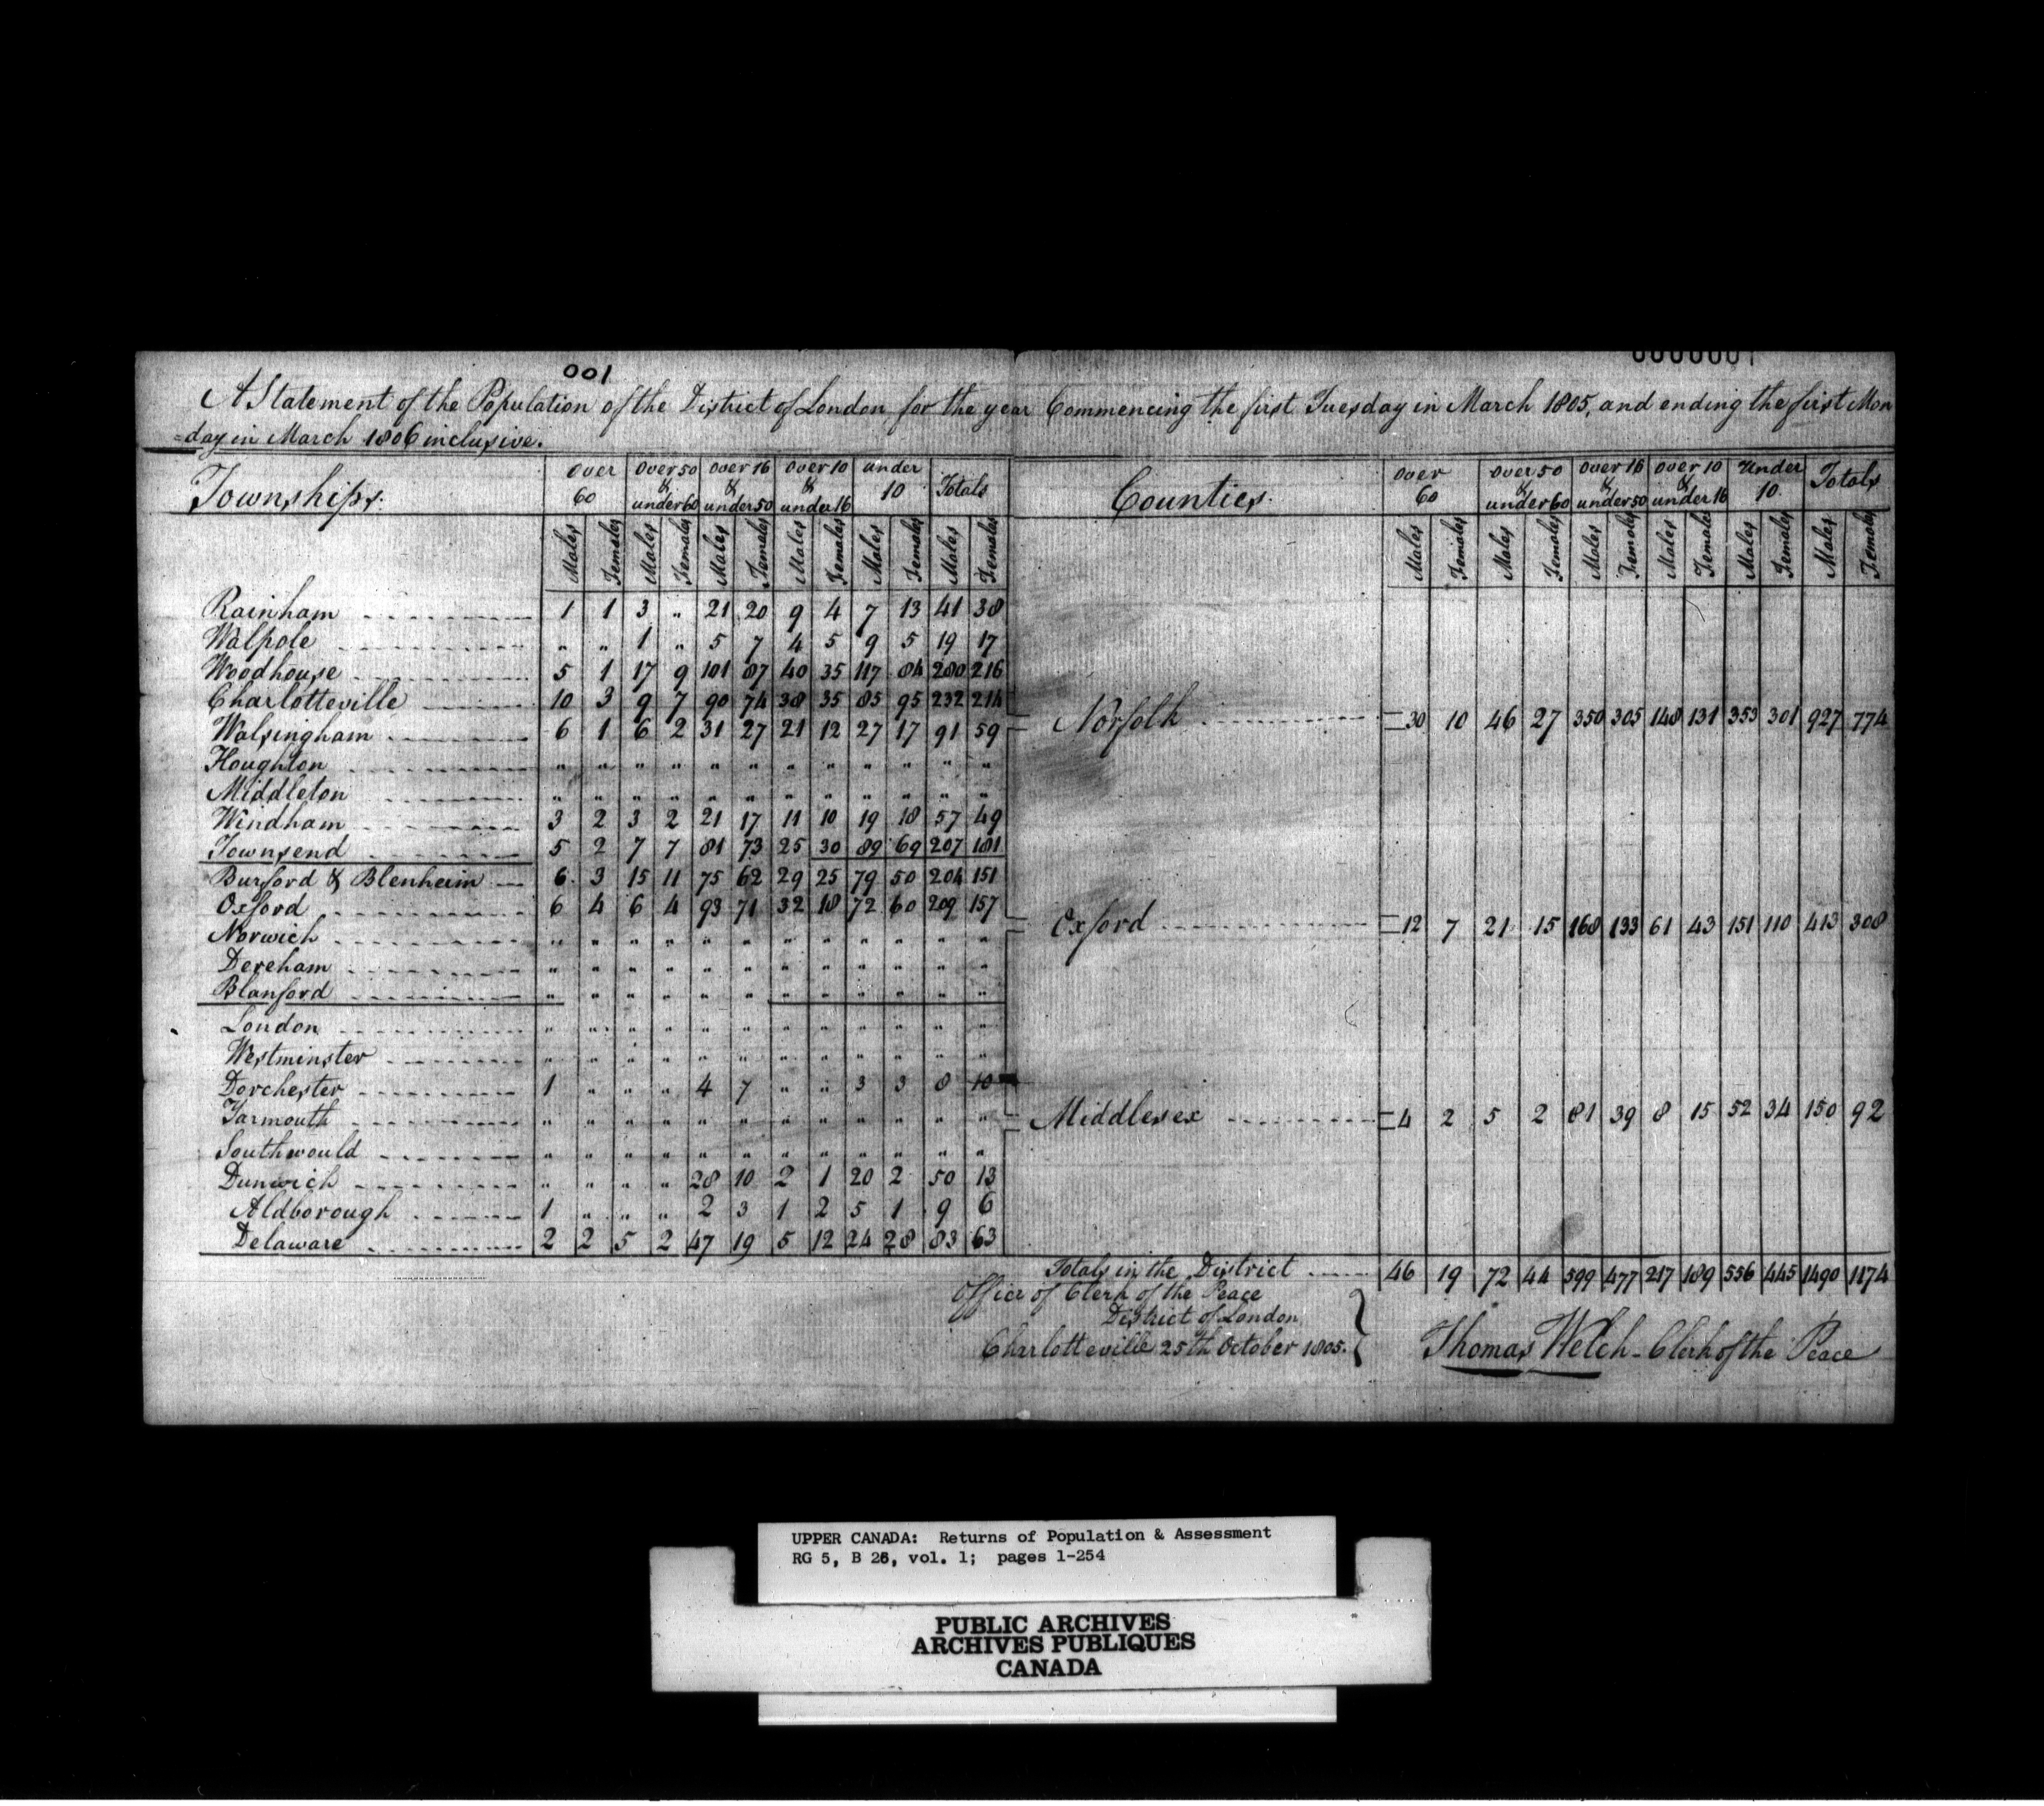 001
0000001
A Statement of the Population of the District of London for the year Commencing the first Tuesday in March 1805, and ending the first Mon
=day in March 1806 inclusive.
Townships. over 60 over 50 & under 60 over 16 & under 50 over 10 & under 16 under 10 Totals
Males Females Males Females Males Females Males Females Males Females Males Females
Rainham 1 1 3 " 21 20 9 4 7 13 41 38
Walpole " " 1 " 5 7 4 5 9 5 19 17
Woodhouse 5 1 17 9 101 87 40 35 117 84 280 216
Charlotteville 10 3 9 7 90 74 38 35 85 95 232 214
Walsingham 6 1 6 2 31 27 21 12 27 17 91 59
Houghton " " " " " " " " " " " "
Middleton " " " " " " " " " " " "
Windham 3 2 3 2 21 17 11 10 19 18 57 49
Townsend 5 2 7 7 81 73 25 30 89 69 207 181
Burford & Blenheim 6 3 15 11 75 62 29 25 79 50 204 151
Oxford 6 4 6 4 93 71 32 18 72 60 209 157
Norwich " " " " " " " " " " " "
Dereham " " " " " " " " " " " "
Blanford " " " " " " " " " " " "
London " " " " " " " " " " " "
Westminster " " " " " " " " " " " "
Dorchester 1 " " " 4 7 " " 3 3 8 10
Yarmouth " " " " " " " " " " " "
Southwould " " " " " " " " " " " "
Dunwich " " " " 28 10 2 1 20 2 50 13
Aldborough 1 " " " 2 3 1 2 5 1 9 6
Delaware 2 2 5 2 47 19 5 12 24 28 83 63
Counties. over 60 over 50 & under 60 over 16 & under 50 over 10 & under 16 Under 10. Totals
Males Females Males Females Males Females Males Females Males Females Males Females
Norfolk 30 10 46 27 350 305 148 131 353 301 927 774
Oxford 12 7 21 15 168 133 61 43 151 110 413 308
Middlesex 4 2 5 2 81 39 8 15 52 34 150 92
Totals in the District 46 19 72 44 599 477 217 189 556 445 1490 1174
Office of Clerk of the Peace
District of London
Charlotteville 25th October 1805.
Thomas Welch - Clerk of the Peace
UPPER CANADA: Returns of Population & Assessment
RG 5, B 26, vol. 1; pages 1-254
PUBLIC ARCHIVES
ARCHIVES PUBLIQUES
CANADA